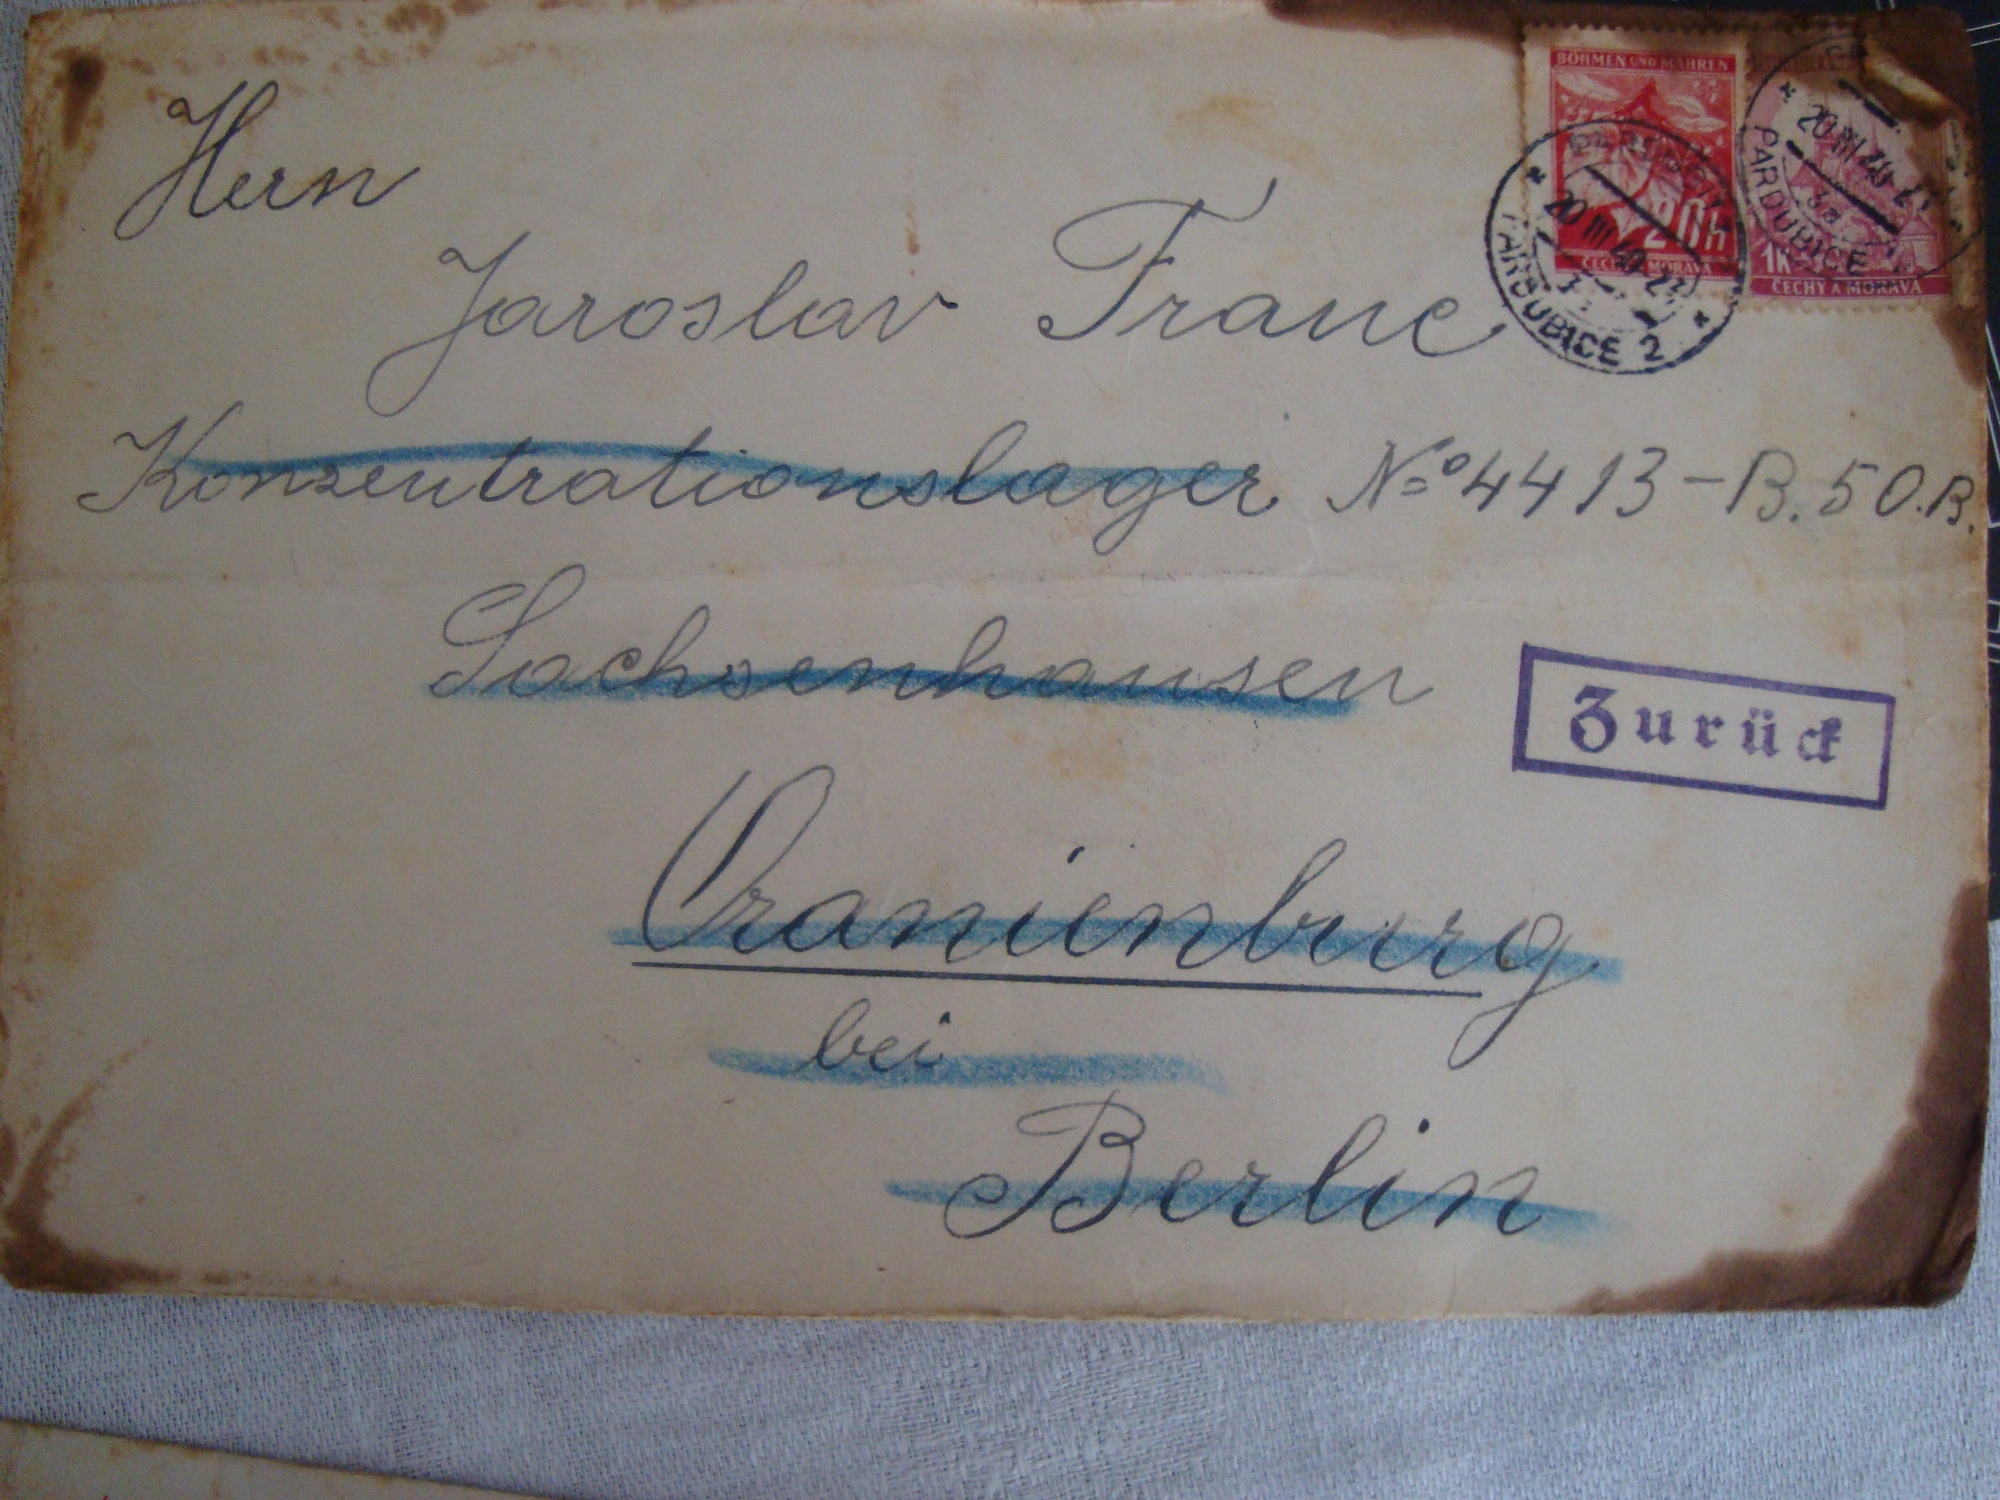 BÖHMEN UND MÄHREN
20h
ČECHY A MORAVA
1K
ČECHY A MORAVA
20 III 40
PARDUBICE
20 III 40
PARDUBICE 2
Herrn
Jaroslav Franc
Konzentrationslager No 4413-B.50.B.
Sachsenhausen
Zurück
Oranienburg
bei
Berlin